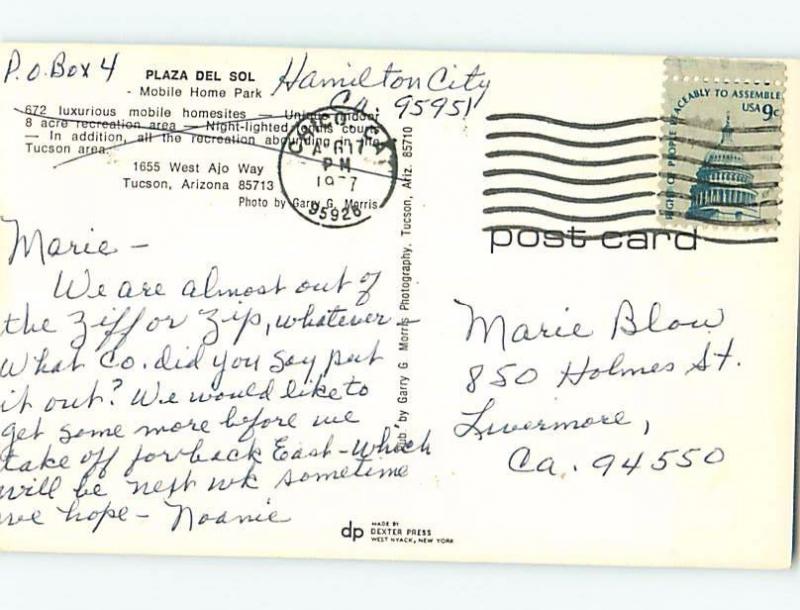 P.O. Box 4
PLAZA DEL SOL
- Mobile Home Park
Hamilton City
Ca. 95951
672 luxurious mobile homesites — Unique indoor
8 acre recreation area — Night-lighted tennis courts
— In addition, all the recreation abounding in the
Tucson area.
1655 West Ajo Way
Tucson, Arizona 85713
Photo by Garry G. Morris
CHICO, CA
PM
1977
95926
RIGHT OF PEOPLE PEACEABLY TO ASSEMBLE
USA 9c
post card
Marie -
We are almost out of
the Ziff or Zip, whatever -
What Co. did you say put
it out? We would like to
get some more before we
take off for back East - which
will be next wk sometime
we hope - Noanie
Pub. by Garry G Morris Photography, Tucson, Ariz. 85710
Marie Blow
850 Holmes St.
Livermore,
Ca. 94550
dp MADE BY
DEXTER PRESS
WEST NYACK, NEW YORK